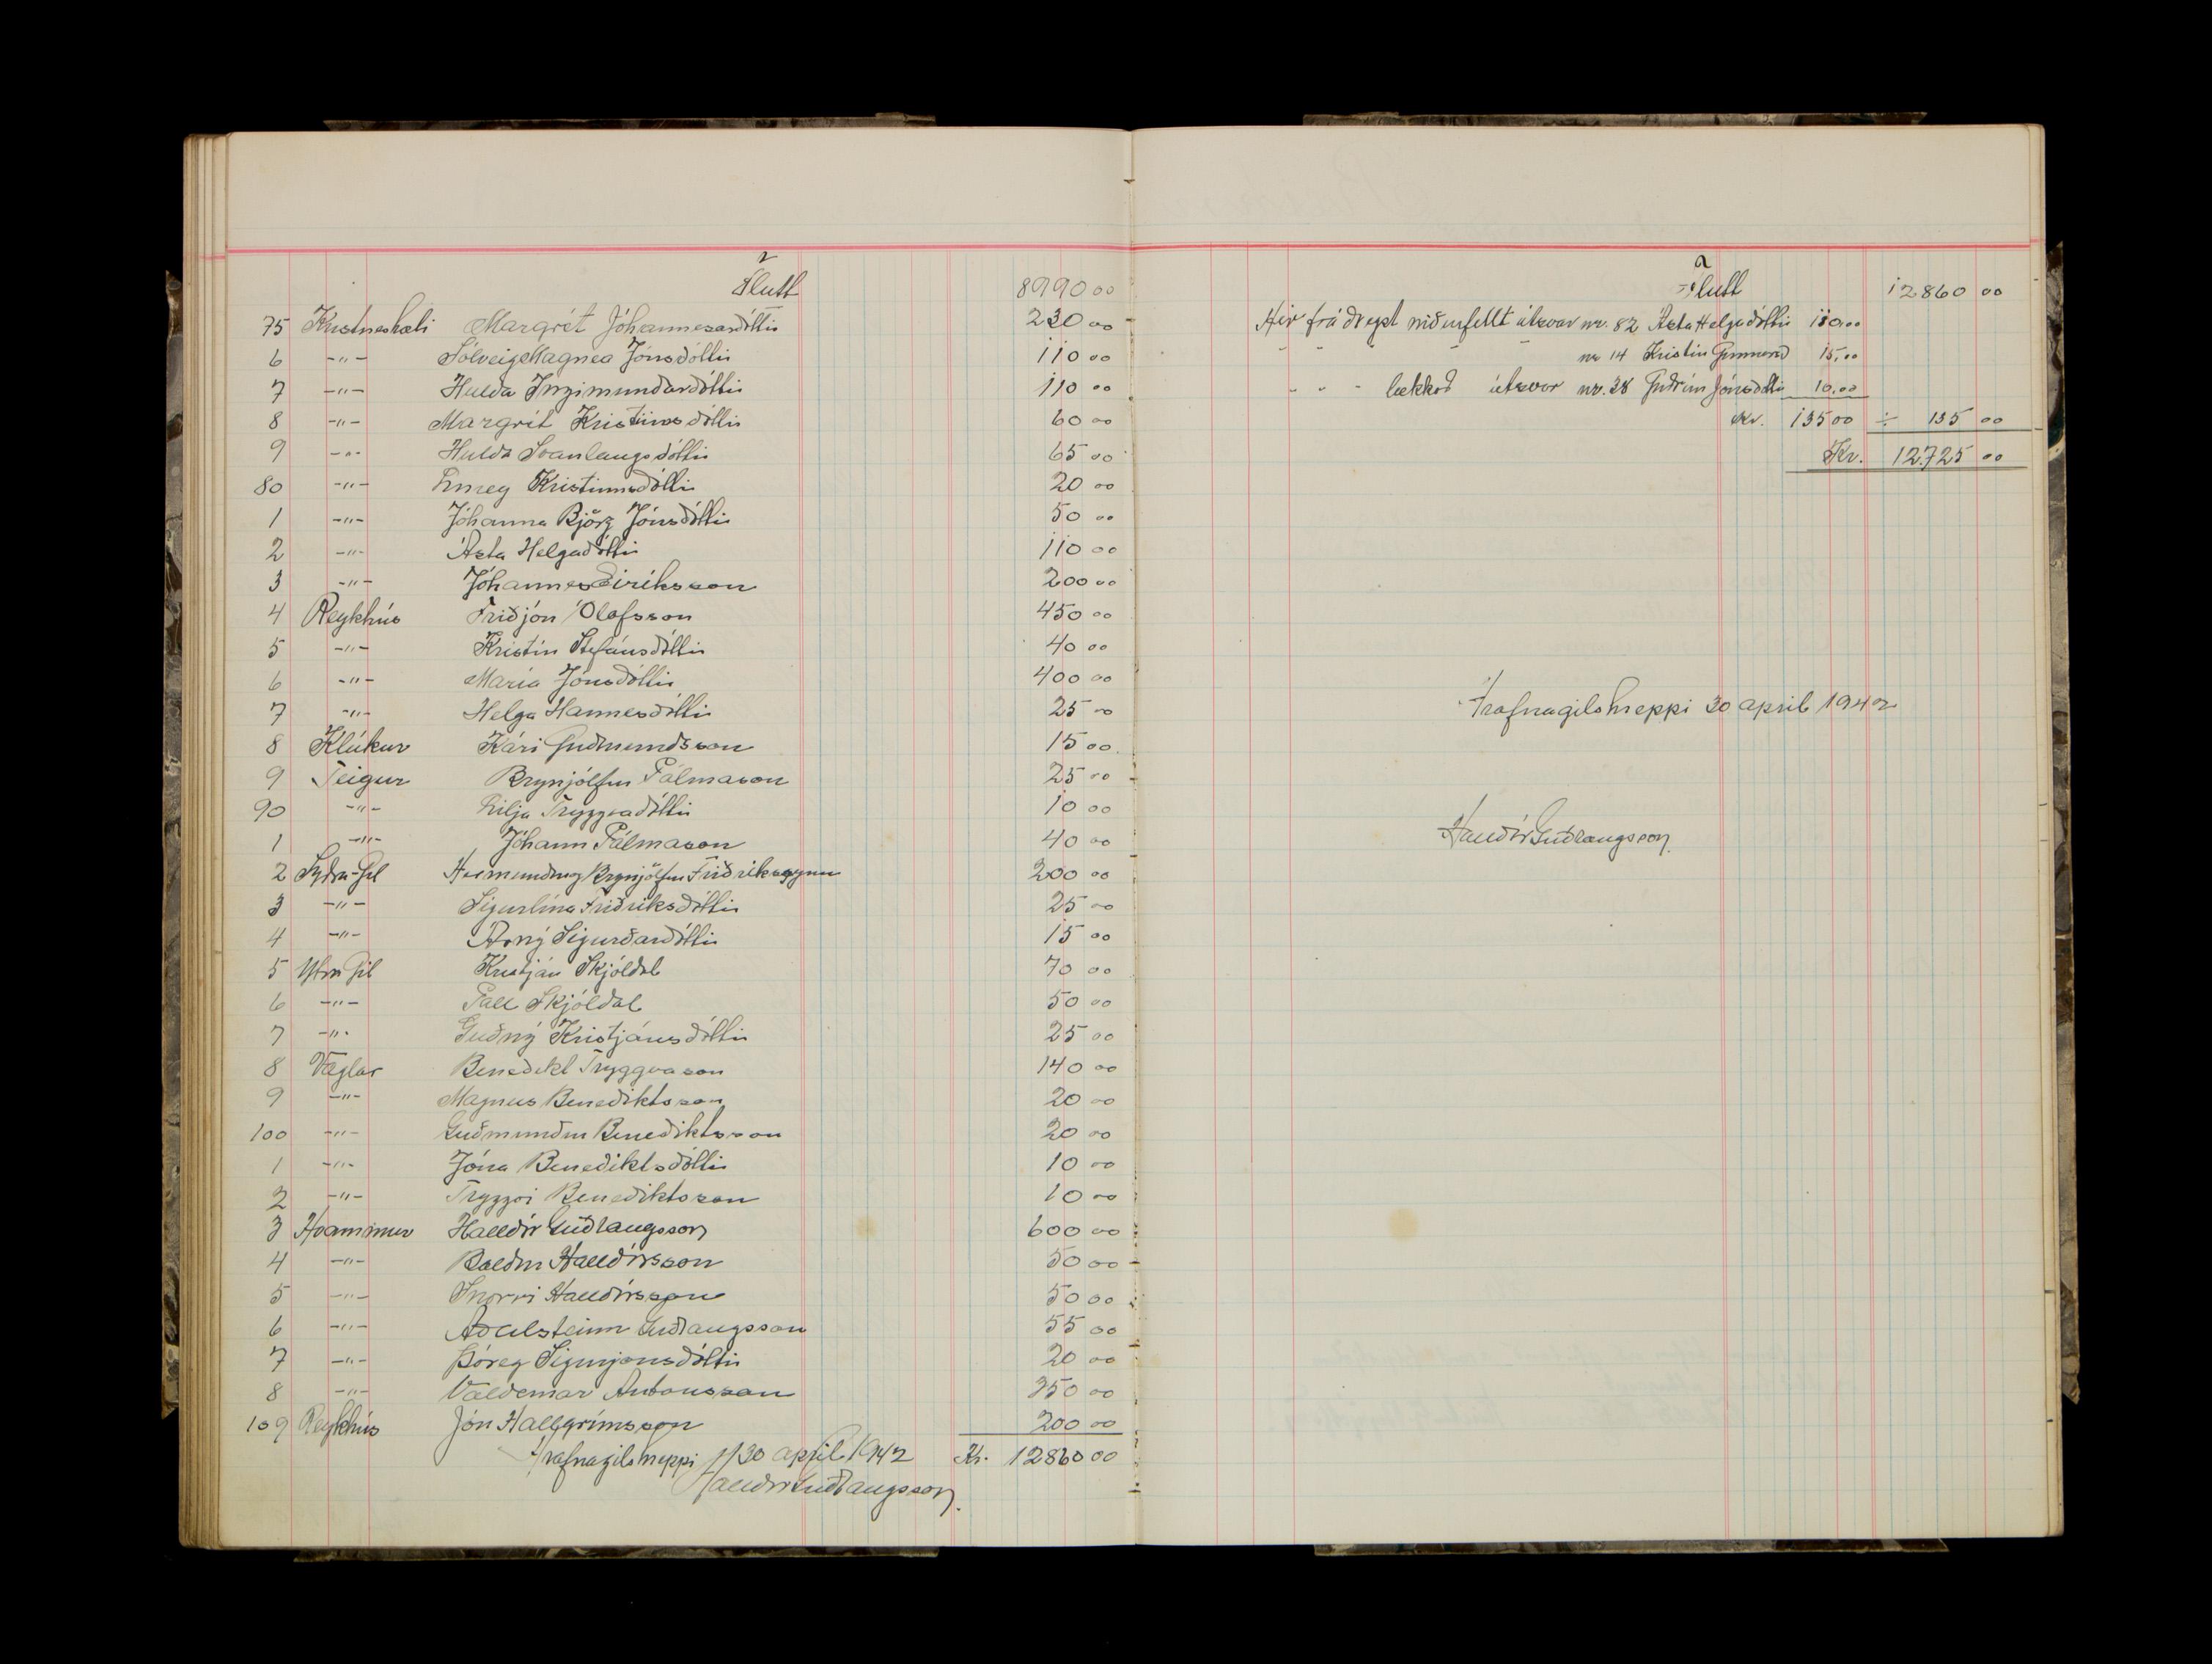 Flutt 8990 00
75 Kristneshæli Margrét Jóhannesardóttir 230 00
6 -"- Sólveig Magnea Jónsdóttir 110 00
7 -"- Hulda Ingimundardóttir 110 00
8 -"- Margrét Kristinsdóttir 60 00
9 -"- Hulda Svanlaugsdóttir 65 00
80 -"- Kristinnsdóttir 20 00
1 -"- Jóhanna Björg Jónsdóttir 50 00
2 -"- Ásta Helgadóttir 110 00
3 -"- Jóhannes Eiríksson 200 00
4 Reykhús Friðjón Ólafsson 450 00
5 -"- Kristín Stefánsdóttir 40 00
6 -"- María Jónsdóttir 400 00
7 -"- Helga Hannesdóttir 25 00
8 Klúkur Kári Guðmundsson 15 00
9 Teigur Brynjólfur Pálmason 25 00
90 -"- Lilja Tryggvadóttir 10 00
1 -"- Jóhann Pálmason 40 00
2 Syðra-Gil Brynjólfur Friðrikssynir 200 00
3 -"- Sigurlína Friðriksdóttir 25 00
4 -"- Árný Sigurðardóttir 15 00
5 Ytra Gil Kristján Skjóldal 70 00
6 -"- Páll Skjóldal 50 00
7 -"- Guðný Kristjánsdóttir 25 00
8 Vaglar Benedikt Tryggvason 140 00
9 -"- Magnus Benediktsson 20 00
100 -"- Guðmundur Benediktsson 20 00
1 -"- Jóna Benediktsdóttir 10 00
2 -"- Tryggvi Benediktsson 10 00
3 Hvammur Halldór Guðlaugsson 600 00
4 -"- Baldur Halldórsson 50 00
5 -"- Snorri Halldórsson 50 00
6 -"- Aðalsteinn Guðlaugsson 55 00
7 -"- Þórey Sigurjónsdóttir 20 00
8 -"- Valdemar Antonsson 350 00
109 Reykhús Jón Hallgrímsson 200 00
Hrafnagilshreppi 30 apríl 1942 Kr. 12860 00
Halldór Guðlaugsson
Flutt 12860 00
Hér frá dregst niðurfellt útsvar nr. 82 Ásta Helgadóttir 110.00
- - - - nr 14 Kristín Gunnarsd 15,00
- " - lækkað útsvar nr. 38 Guðrún Jónsdóttir 10.00
Kr. 135 00 ÷ 135 00
Kr. 12725 00
Hrafnagilshreppi 30 apríl 1942
Halldór Guðlaugsson